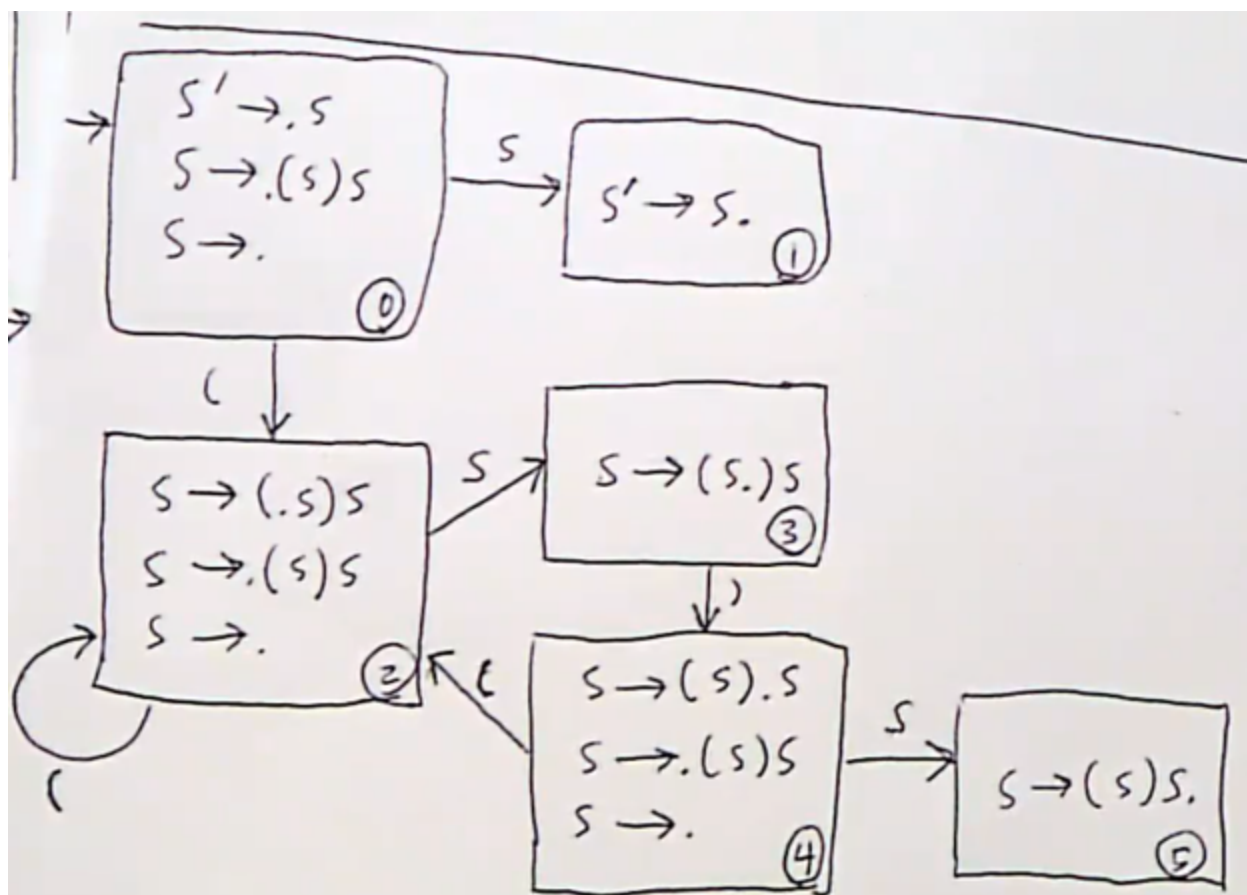 S' → .S
S → .(S)S
S → .
0
S
S' → S.
1
(
S → (.S)S
S → .(S)S
S → .
2
(
S
S → (S.)S
3
)
(
S → (S).S
S → .(S)S
S → .
4
S
S → (S)S.
5